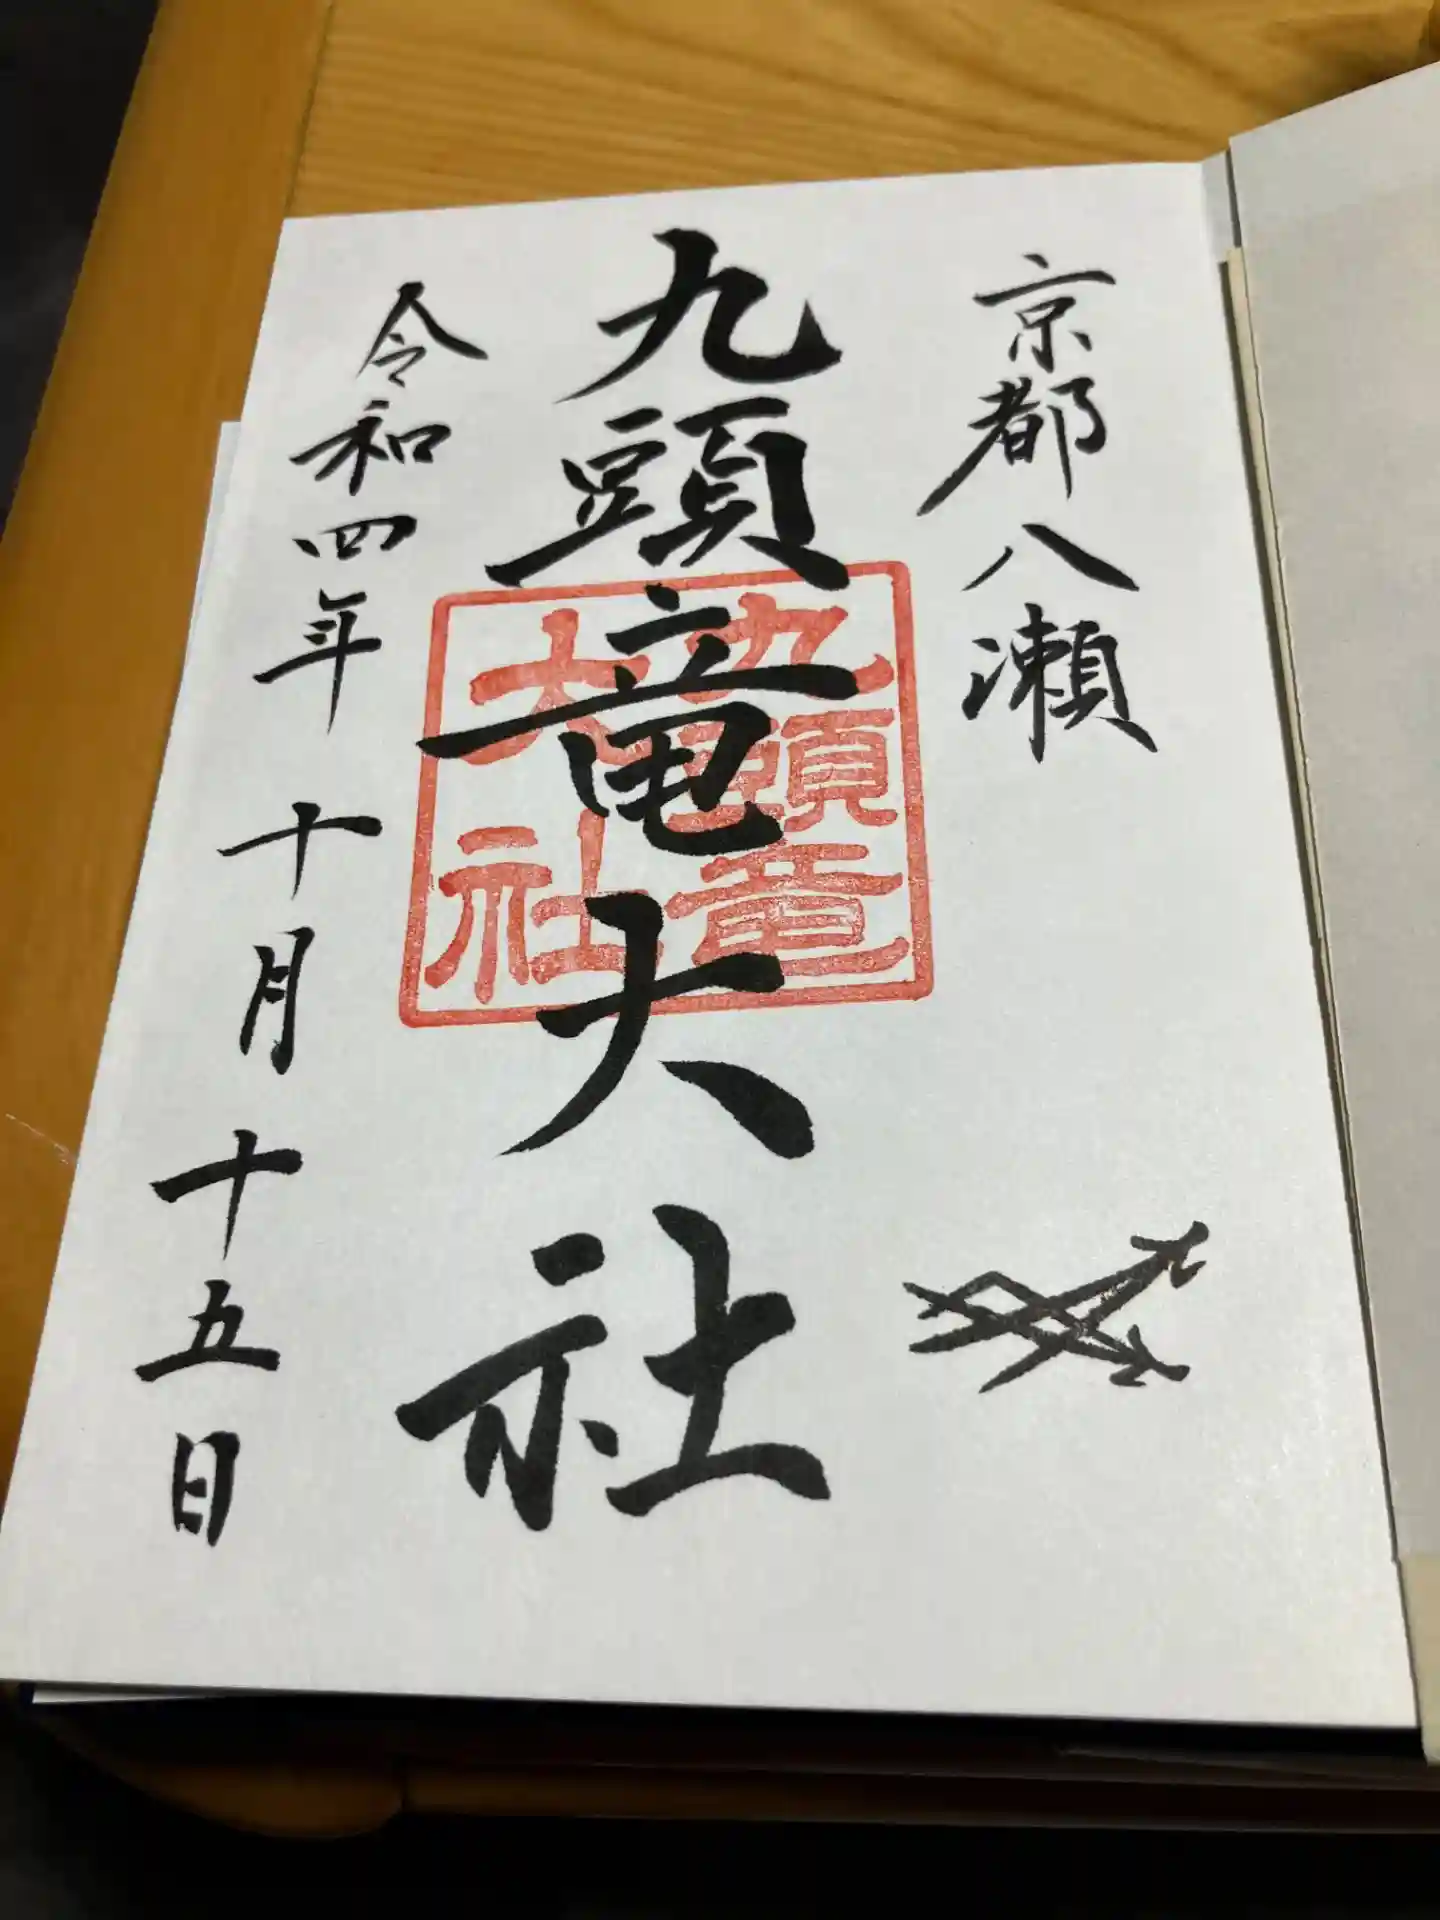 京都八瀬
九頭竜大社
九頭竜
大社
令和四年 十月十五日